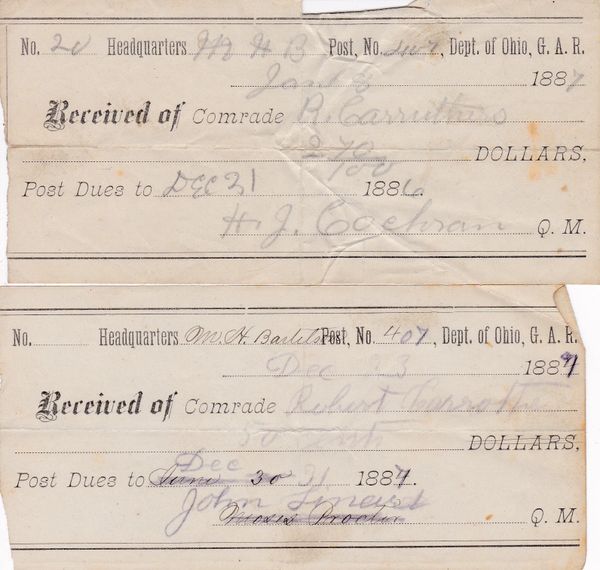 No. 20 Headquarters M H B Post, No. 407, Dept. of Ohio, G. A. R.
Jan 3 1887
Received of Comrade R. Carruthers
2 70/100 DOLLARS,
Post Dues to DEC 31 1886.
H. J. Cochran Q. M.
No. Headquarters M. H. Bartels Post, No. 407, Dept. of Ohio, G. A. R.
Dec 23 1887
Received of Comrade Robert
50 cents DOLLARS,
Dec
Post Dues to June 30 31 1887.
John
Moses Proctor Q. M.